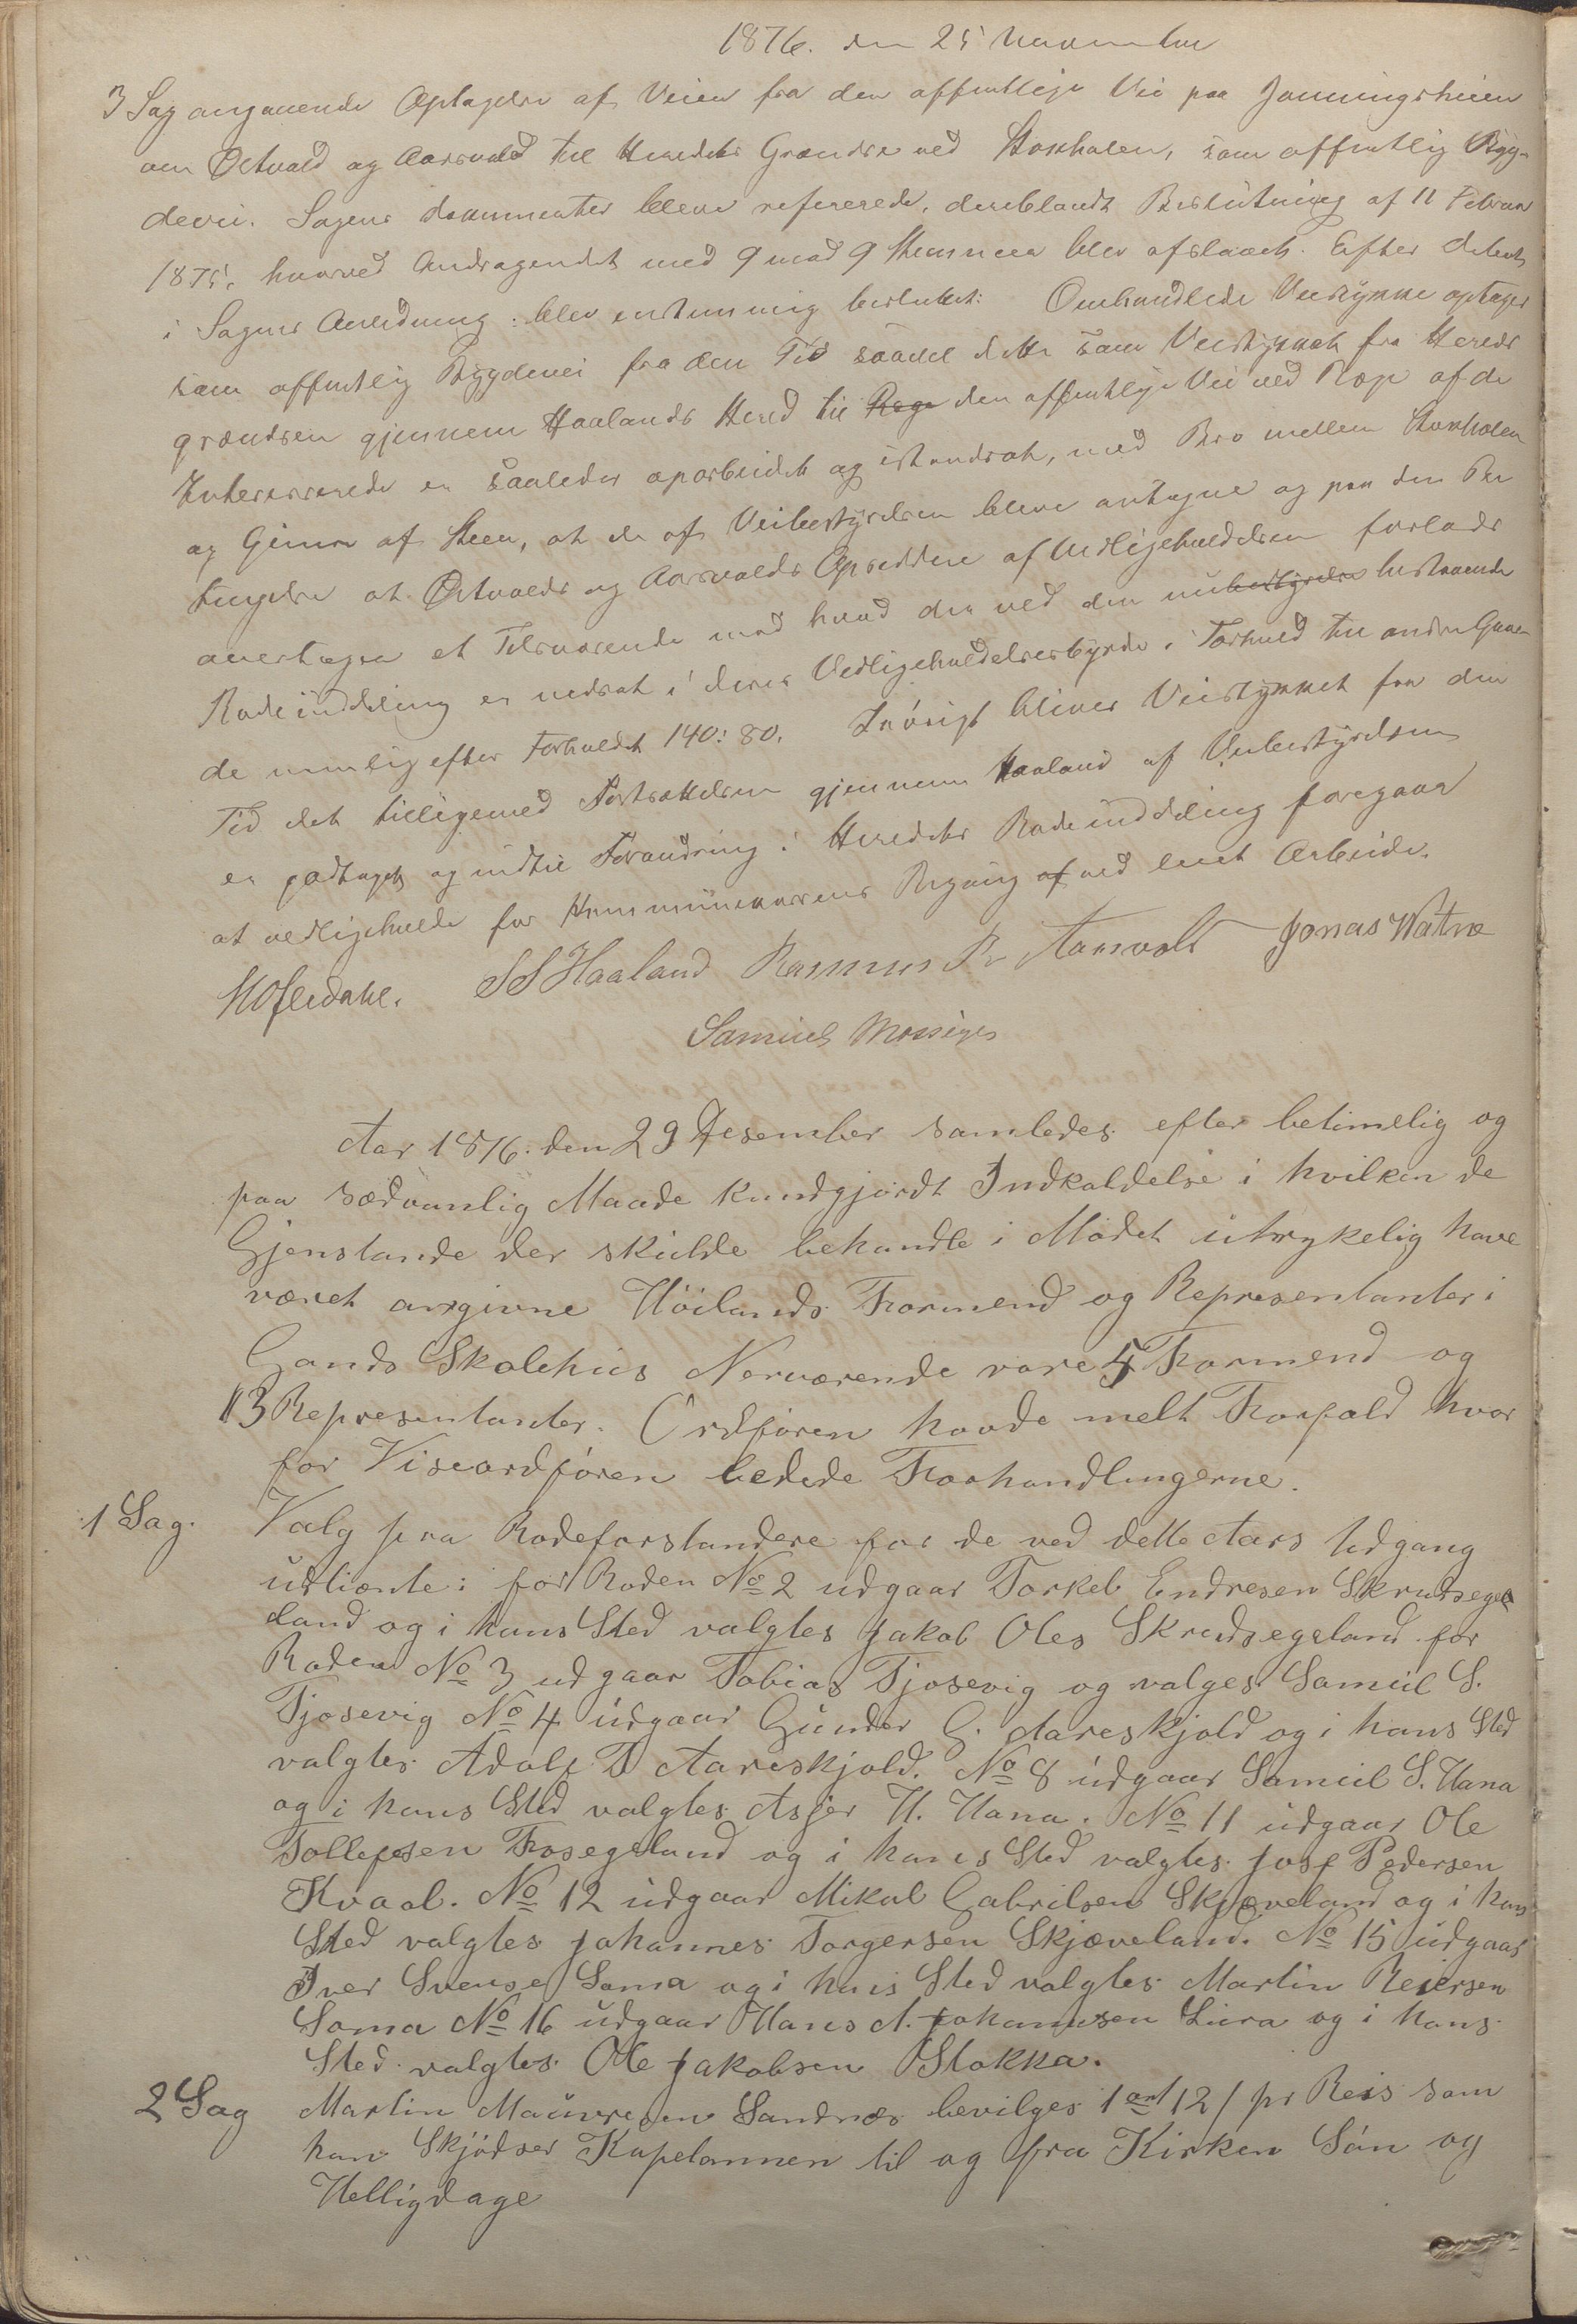 1876. den 25 November
3 Sag angaaende Optagelse af Veien fra den offentlige Vei paa Jonningsheien
om Østvold og Aarsvold til Heredets Grændse ved Stokholen, som offentlig Byg-
devei. Sagens dokumenter bleve refererede, deriblandt Beslutning af 11 Februar
1875, hvorved Andragendet med 9 mod 9 Stemmer blev afslaaet. Efter debat
i Sagens Anledning: blev enstemmig besluttet: Omhandlede Veistykke optages
som offentlig Bygdevei fra den Tid saavel dette som Veistykket fra Hereds
grændsen gjennem Haalands Hered til Rege den offentlige Vei ved Rege af de
Interesserede er saaledes oparbeidet og istandsat, med Bro mellem Stokholen
og Gimra af Steen, at de af Veibestyrelsen bleve antagne og paa den Be
tingelse at Østvolds og Aarsvolds Opsiddere af Vedligeholdelsen forlods
overtager et Tilsvarende mod hvad der ved den nubestyrelse bestaaende
Rodeinddeling er nedsat i deres Vedligeholdelsesbyrde i Forhold til andre Gaar-
de nemlig efter Forholdet 140: 80. Iøvrigt bliver Veistykket fra den
Tid det tilligemed Fortsættelsen gjennem Haaland af Veibestyrelsen
er godtaget og indtil Forandring i Heredets Rodeinddeling foregaar
at vedligeholde for Kommunekassens Regning af ved leiet Arbeide.
S S Haaland Rasmus R. Aarsvold Jonas Watne
Samuel Mossiges
Aar 1876. den 29 Desember samledes efter betimelig og
paa sædvanlig Maade kundgjørdt Indkaldelse i hvilken de
Gjenstande der skulde behandle i Mødet utrykelig have
været angivne Høilands Formend og Representanter i
Gands Skolehus Nerværende vare 5 Formend og
13 Representanter. Ordføren havde melt Forfald hvor
for Viseordføren ledede Forhandlingerne.
1 Sag. Valg paa Rodeforstandere for de ved dette Aars Udgang
udtiænte: for Roden No 2 udgaar Torkel Endresen Skrudsege
land og i hans Sted valgtes Jakob Oles Skrudsegeland for
Roden No 3 udgaar Tobias Tjosevig og valges Samuel S.
Tjosevig No 4 udgaar Gunder G. Aareskjold og i hans Sted
valgtes Adolf T Aareskjold. No 8 udgaar Samuel S. Hana
og i hans Sted valgtes Asjer H. Hana. No 11 udgaar Ole
Tollefsen Fosegeland og i hans Sted valgtes Josf Pedersen
Kvaal. No 12 udgaar Mikal Gabrilsen Skjæveland og i hans
Sted valgtes Johannes Torgersen Skjæveland. No 15 udgaar
Iver Svense Soma og i hans Sted valgtes Martin Reiersen
Soma No 16 udgaar Hans A. Johannesen Lura og i hans
Sted valgtes Ole Jakobsen Stokka.
2 Sag Martin Mauresen Sandnæs bevilges 1 ort 12 / pr Reis som
han Skjødser Kapelannen til og fra Kirken Søn og
Helligdage